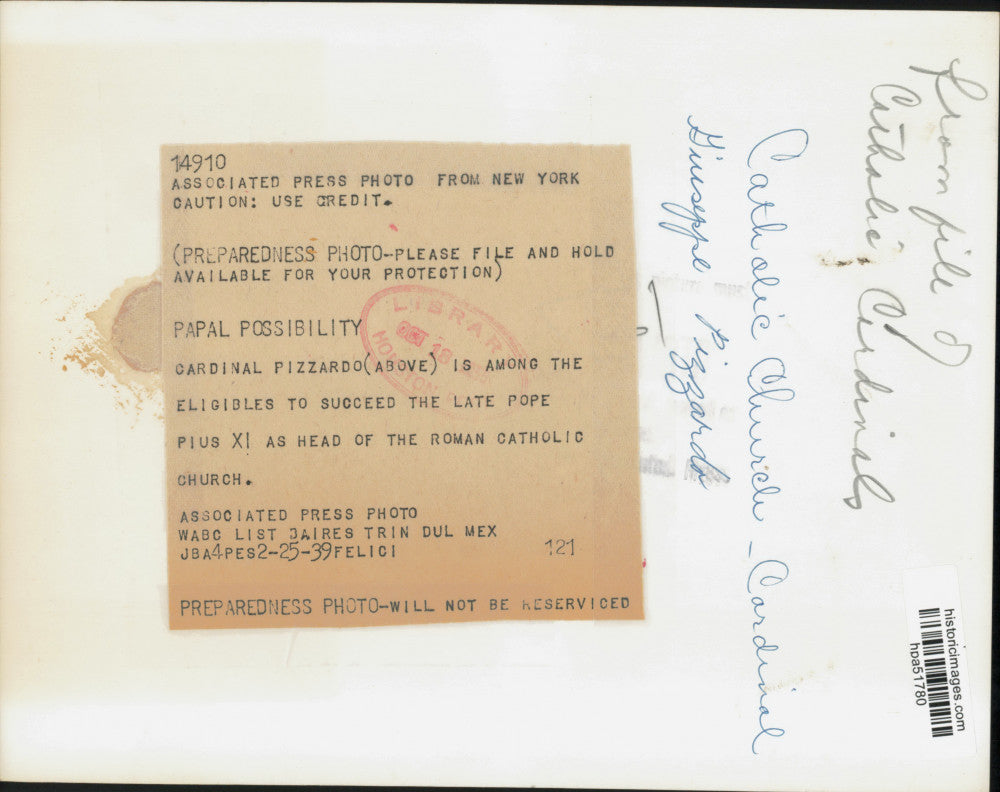 14910
ASSOCIATED PRESS PHOTO FROM NEW YORK
CAUTION: USE CREDIT.
(PREPAREDNESS PHOTO-PLEASE FILE AND HOLD
AVAILABLE FOR YOUR PROTECTION)
PAPAL POSSIBILITY
CARDINAL PIZZARDO(ABOVE) IS AMONG THE
ELIGIBLES TO SUCCEED THE LATE POPE
PIUS XI AS HEAD OF THE ROMAN CATHOLIC
CHURCH.
ASSOCIATED PRESS PHOTO
WABC LIST BAIRES TRIN DUL MEX
JBA4PES2-25-39FELICI 121
PREPAREDNESS PHOTO-WILL NOT BE RESERVICED
LIBRAR
OCT 18
HOUSTON
From file of
Catholic Cardinals
Catholic Church - Cardinal
Giuseppe Pizzardo
historicimages.com
hpa51780